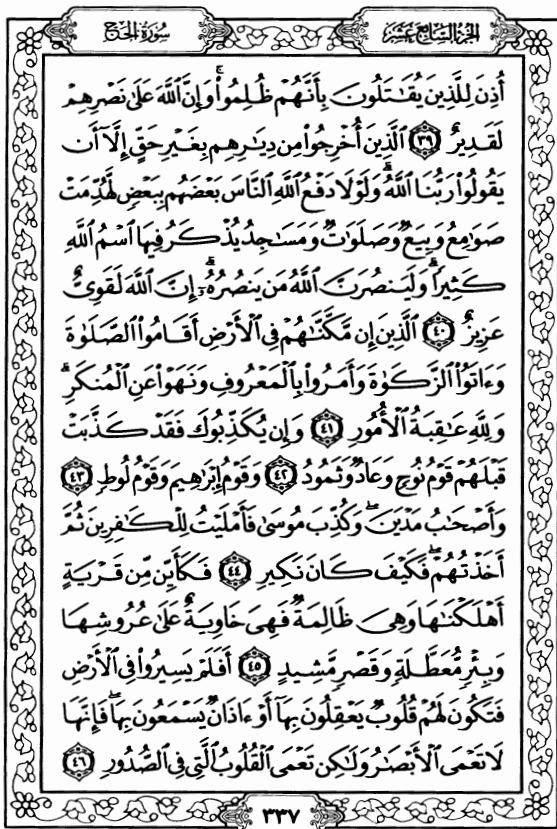 سُورَةُ الحَجِّ
الجُزْءُ السَّابِعَ عَشَرَ
أُذِنَ لِلَّذِينَ يُقَٰتَلُونَ بِأَنَّهُمۡ ظُلِمُواْۚ وَإِنَّ ٱللَّهَ عَلَىٰ نَصۡرِهِمۡ
لَقَدِيرٌ ٣٩ ٱلَّذِينَ أُخۡرِجُواْ مِن دِيَٰرِهِم بِغَيۡرِ حَقٍّ إِلَّآ أَن
يَقُولُواْ رَبُّنَا ٱللَّهُۗ وَلَوۡلَا دَفۡعُ ٱللَّهِ ٱلنَّاسَ بَعۡضَهُم بِبَعۡضٖ لَّهُدِّمَتۡ
صَوَٰمِعُ وَبِيَعٞ وَصَلَوَٰتٞ وَمَسَٰجِدُ يُذۡكَرُ فِيهَا ٱسۡمُ ٱللَّهِ
كَثِيرٗاۗ وَلَيَنصُرَنَّ ٱللَّهُ مَن يَنصُرُهُۥٓۚ إِنَّ ٱللَّهَ لَقَوِيٌّ
عَزِيزٌ ٤٠ ٱلَّذِينَ إِن مَّكَّنَّٰهُمۡ فِي ٱلۡأَرۡضِ أَقَامُواْ ٱلصَّلَوٰةَ
وَءَاتَوُاْ ٱلزَّكَوٰةَ وَأَمَرُواْ بِٱلۡمَعۡرُوفِ وَنَهَوۡاْ عَنِ ٱلۡمُنكَرِۗ
وَلِلَّهِ عَٰقِبَةُ ٱلۡأُمُورِ ٤١ وَإِن يُكَذِّبُوكَ فَقَدۡ كَذَّبَتۡ
قَبۡلَهُمۡ قَوۡمُ نُوحٖ وَعَادٞ وَثَمُودُ ٤٢ وَقَوۡمُ إِبۡرَٰهِيمَ وَقَوۡمُ لُوطٖ ٤٣
وَأَصۡحَٰبُ مَدۡيَنَۖ وَكُذِّبَ مُوسَىٰۖ فَأَمۡلَيۡتُ لِلۡكَٰفِرِينَ ثُمَّ
أَخَذۡتُهُمۡۖ فَكَيۡفَ كَانَ نَكِيرِ ٤٤ فَكَأَيِّن مِّن قَرۡيَةٍ
أَهۡلَكۡنَٰهَا وَهِيَ ظَالِمَةٞ فَهِيَ خَاوِيَةٌ عَلَىٰ عُرُوشِهَا
وَبِئۡرٖ مُّعَطَّلَةٖ وَقَصۡرٖ مَّشِيدٍ ٤٥ أَفَلَمۡ يَسِيرُواْ فِي ٱلۡأَرۡضِ
فَتَكُونَ لَهُمۡ قُلُوبٞ يَعۡقِلُونَ بِهَآ أَوۡ ءَاذَانٞ يَسۡمَعُونَ بِهَاۖ فَإِنَّهَا
لَا تَعۡمَى ٱلۡأَبۡصَٰرُ وَلَٰكِن تَعۡمَى ٱلۡقُلُوبُ ٱلَّتِي فِي ٱلصُّدُورِ ٤٦
٣٣٧